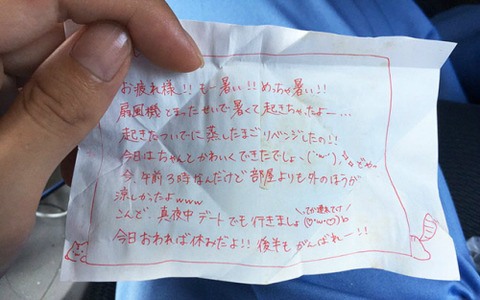 お疲れ様!! もー暑い!! めっちゃ暑い!!
扇風機とまったせいで暑くて起きちゃったよー…
起きたついでに蒸したまごリベンジしたの!!
今日はちゃんとかわいくできたでしょ、(˙꒳˙) どやっ
今、午前3時なんだけど部屋よりも外のほうが
涼しかったよwww
こんど、真夜中デートでも行きましょ (♡'ω'♡)b
今日おわれば休みだよ!! 後半もがんばれー!!